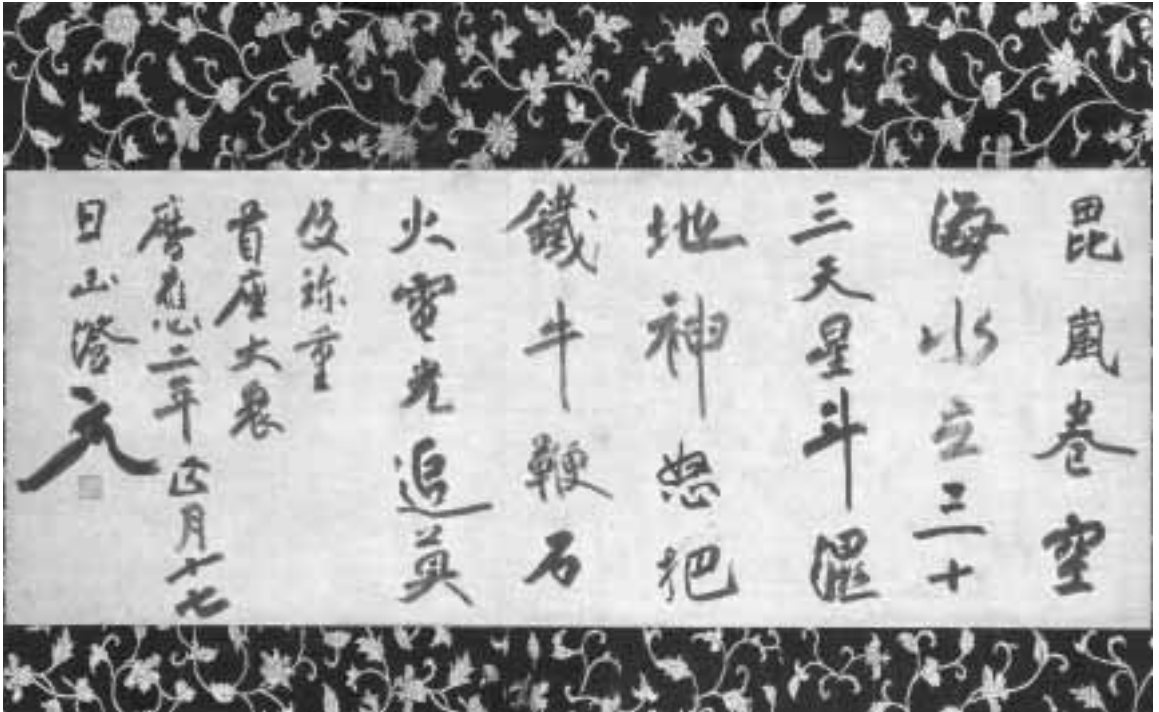 毘嵐巻空
海水立三十
三天星斗濕
地神怒把
鐵牛鞭石
火電光追莫
及珎重
首座大衆
暦應二年正月十七
日正澄